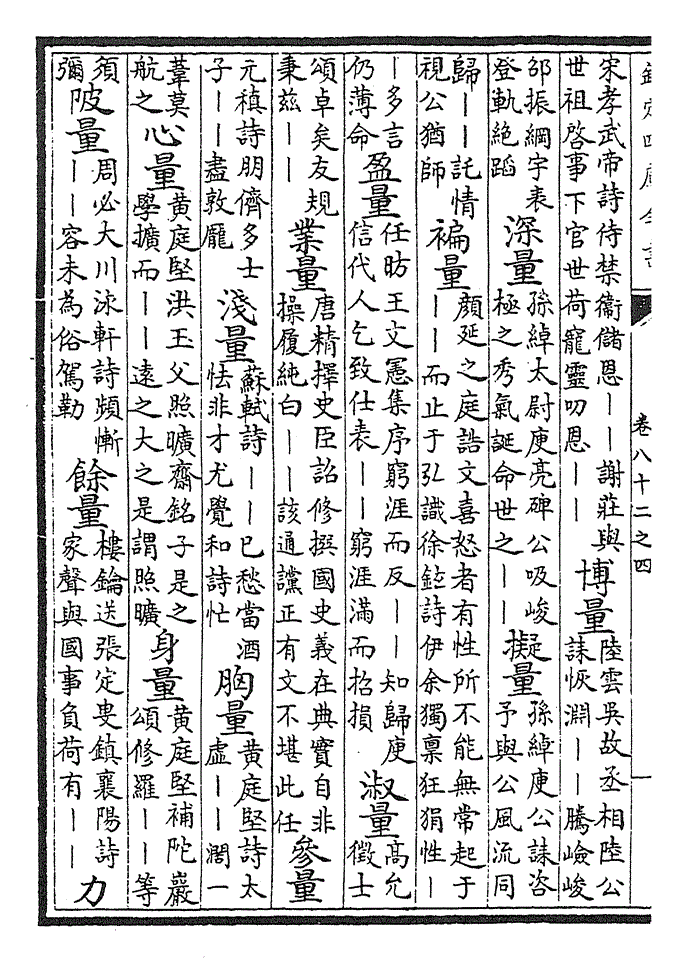 欽定四庫全書
卷八十二之四
一
宋孝武帝詩侍禁衞儲恩——謝莊與世祖啓事下官世荷寵靈叨恩——博量陸雲吳故丞相陸公誄恢淵——騰嶮峻
邵振綱宇表登軌絕蹈深量孫綽太尉庾亮碑公吸峻極之秀氣誕命世之——擬量孫綽庾公誄咨予與公風流同
歸——託情視公猶師褊量顏延之庭誥文喜怒者有性所不能無常起于——而止于弘識徐鉉詩伊余獨禀狂狷性—
—多言仍薄命盈量任昉王文憲集序窮涯而反——知歸庾信代人乞致仕表——窮涯滿而招損淑量高允徵士
頌卓矣友規秉兹——業量唐精擇史臣詔修撰國史義在典實自非操履純白——該通讜正有文不堪此任參量
元稹詩朋儕多士子——盡敦厖淺量蘇軾詩——已愁當酒怯非才尤覺和詩忙胸量黄庭堅詩太虚——濶一
葦莫航之心量黄庭堅洪玉父照曠齋銘子是之學擴而——遠之大之是謂照曠身量黄庭堅補陀巖頌修羅——等
須彌陂量周必大川泳軒詩頻慚——容未為俗駕勒餘量樓鑰送張定叟鎮襄陽詩家聲與國事負荷有——力